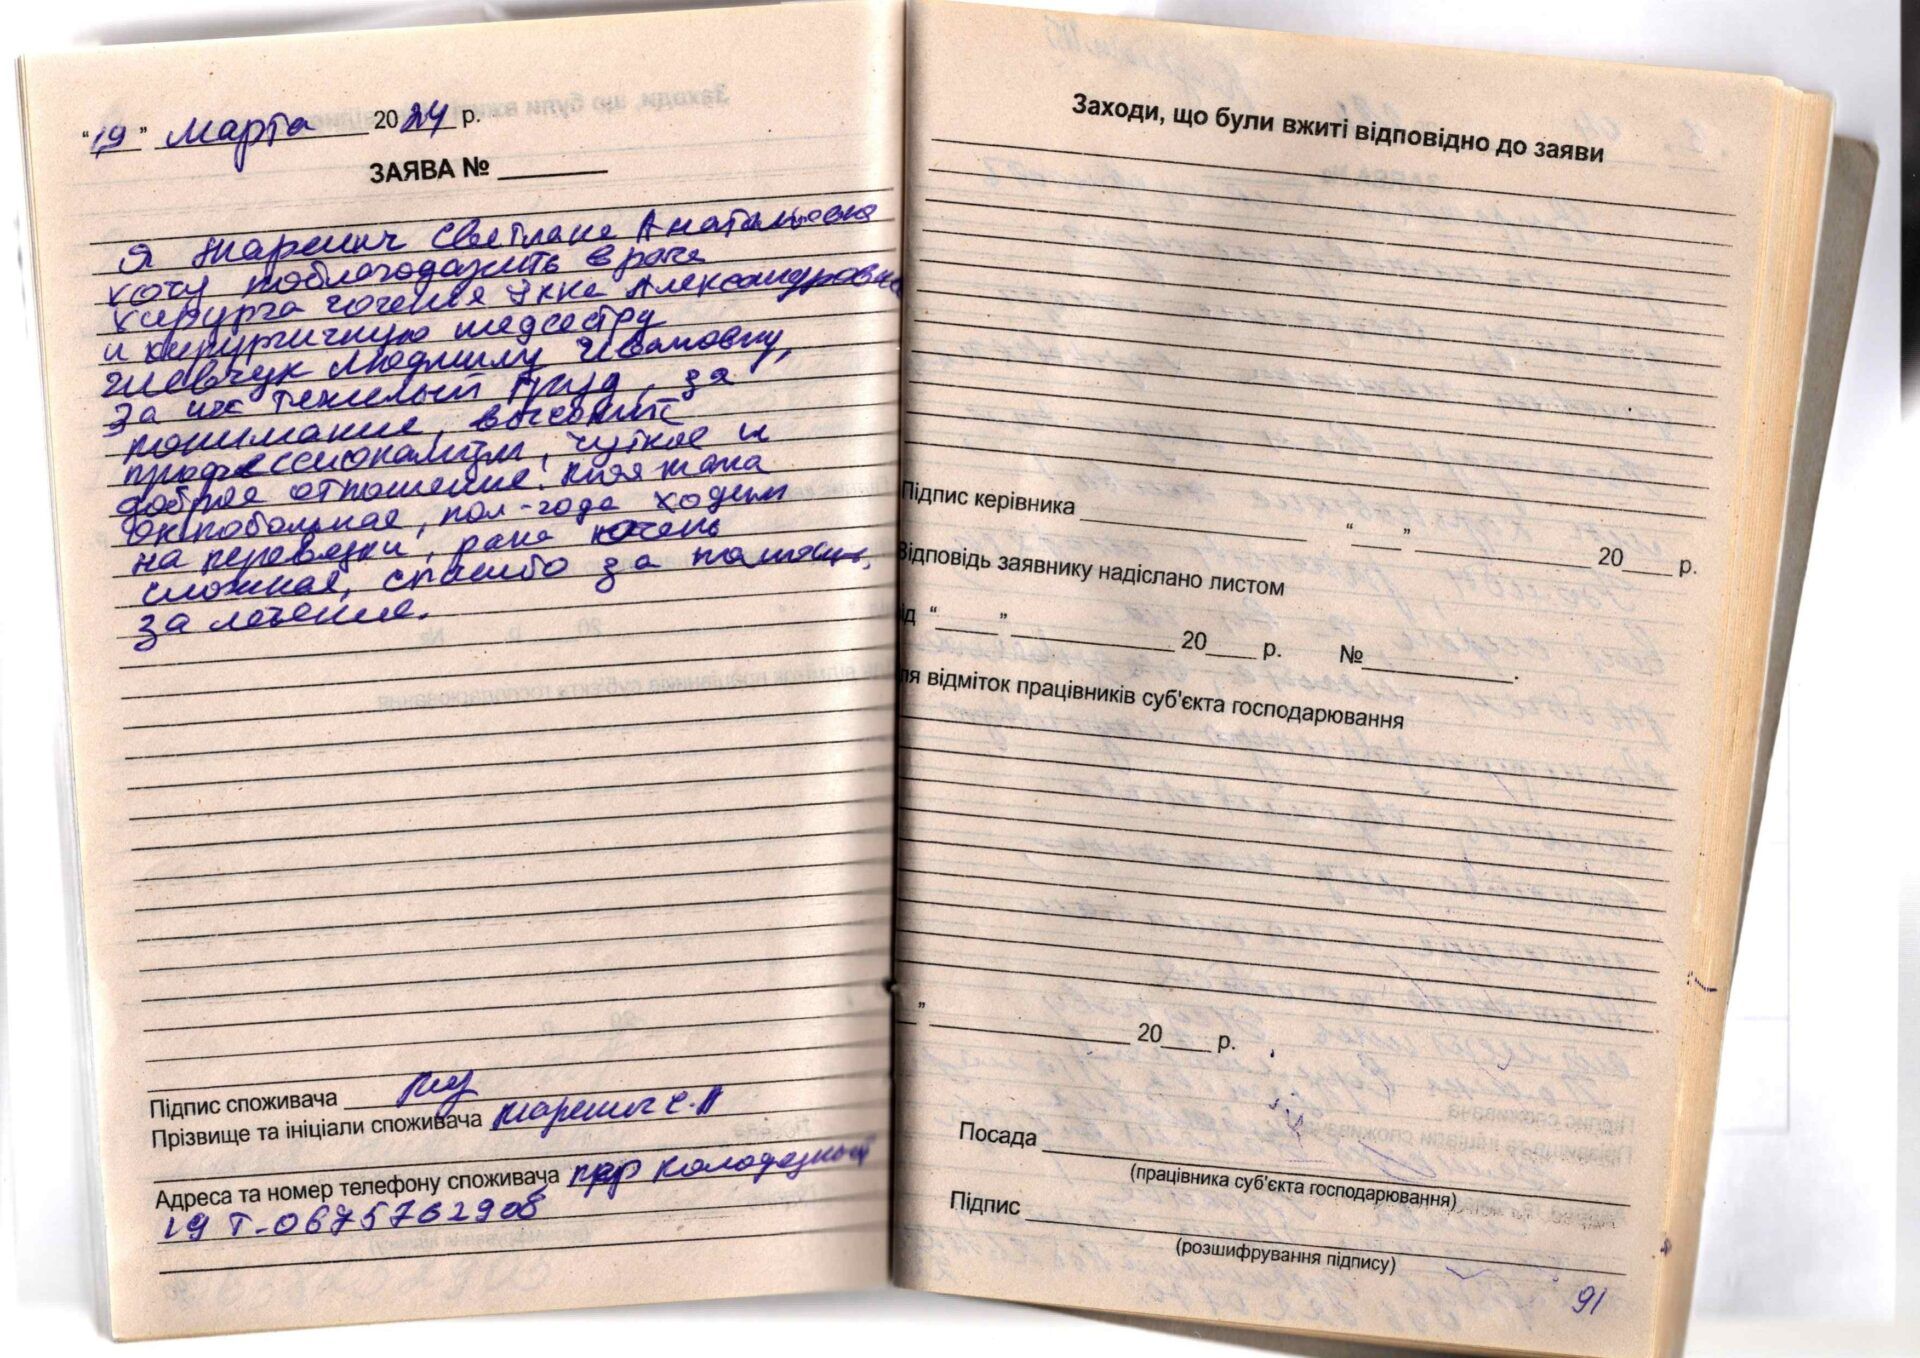 "19" марта 2024 р.
ЗАЯВА № ______
Я Светлана Анатольевна
хочу поблагодарить врача
хирурга Инна Александровна
и хирургичную медсестру
Шевчук Людмилу Ивановну,
за их тяжелый труд, за
понимание, высокий
профессионализм, чуткое и
доброе отношение! мама
онкобольная, пол-года ходим
на перевязки, рана очень
сложная, спасибо за помощь,
за лечение.
Підпис споживача
Прізвище та ініціали споживача С.А
Адреса та номер телефону споживача Колодезный
19 Т-0675762908
Заходи, що були вжиті відповідно до заяви
Підпис керівника ______ "___" ______ 20___ р.
Відповідь заявнику надіслано листом
ід "____" ______ 20___ р. №______.
ля відміток працівників суб'єкта господарювання
" ______ 20___ р.
Посада
(працівника суб'єкта господарювання)
Підпис
(розшифрування підпису)
91